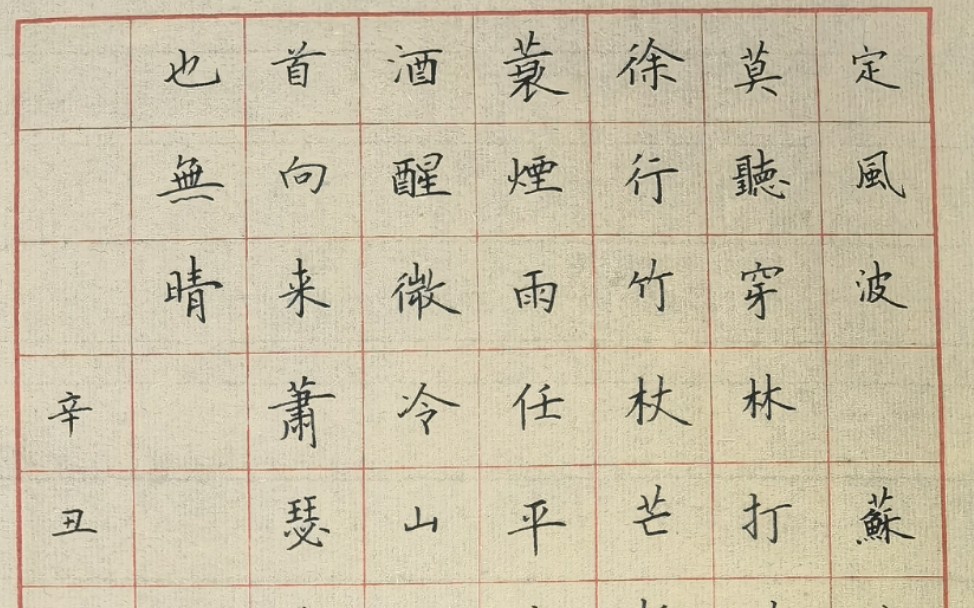 定風波蘇
莫聽穿林打
徐行竹杖芒
蓑煙雨任平
酒醒微冷山
首向来蕭瑟
也無晴
辛丑